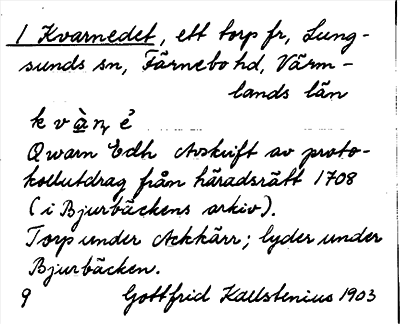 1 Kvarnedet, ett torp fr, Lung-
sunds sn, Färnebo hd, Värm-
lands län
k v à n, ẻ
Qwarn Edh Avskrift av proto-
kollutdrag från häradsrätt 1708
(i Bjurbäckens arkiv).
Torp under Ackkärr; lyder under
Bjurbäcken.
9 Gottfrid Kallstenius 1903